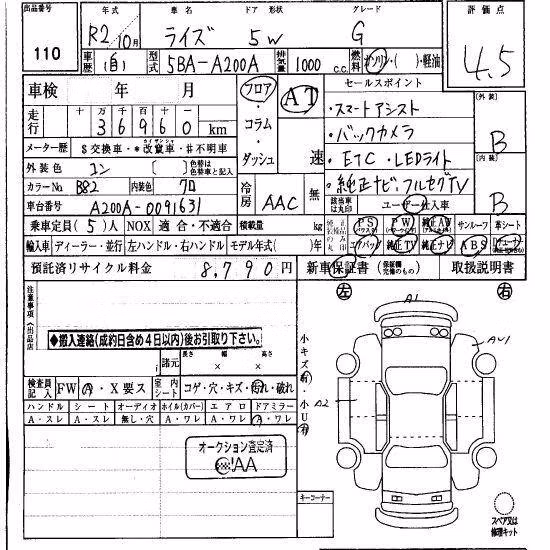 出品番号 年式 車名 ドア 形状 グレード 評価点
110 R2 10月 ライズ 5W G 4.5
車歴 (自) 型式 5BA-A200A 排気量 1000 c.c. 燃料 ガソリン・( )・軽油
車検 年 月 フロア AT セールスポイント [外装]
走行 十万 3 万 6 千 9 百 6 十 0 km ・コラム・ ・スマートアシスト B
メーター歴 $交換車・*改竄車・#不明車 ダッシュ 速 ・バックカメラ
外装色 コン ( )色替は色替車と記入 ・ETC・LEDライト [内装]
カラーNo. B82 内装色 クロ 冷房 AAC 無 ・純正ナビ・フルセグTV B
車台番号 A200A-0091631 該当車は丸印 ユーザー仕入車
乗車定員(5)人 NOX 適合・不適合 積載量 kg PS PW 純正AW サンルーフ 革シート
輸入車 ディーラー・並行 左ハンドル・右ハンドル モデル年式( )年 エアバッグ 純正TV 純正ナビ ABS
預託済リサイクル料金 8,790円 新車保証書(保証欄完備のもの) 取扱説明書
注意事項(出品店) 左 A1 右
◆搬入連絡(成約日含め4日以内)後お引取り下さい。
諸元 長さ × 幅 × 高さ
小キズ有・小U有
検査員記入 FW A・X要ス 室内シート コゲ・穴・キズ・汚れ・破れ A2
ハンドル シート オーディオ ホイル(カバー) エアロ ドアミラー
A・スレ A・スレ 無し・穴 A・ワレ A・ワレ A・ワレ
オークション査定済
AA
キーコーナー
スペア又は修理キット